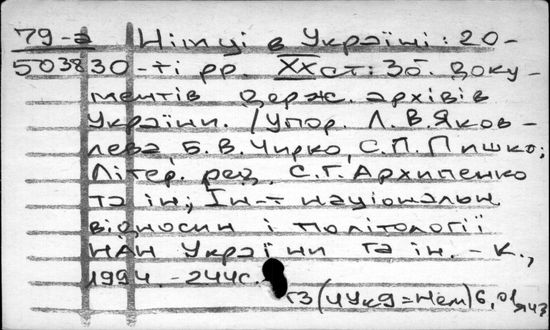 79-а Німці в Україні: 20-
50383 30-ті рр. XX ст.: Зб. доку-
ментів держ. архівів
України. /Упор. Л.В.Яков-
лева, Б.В.Чирко, С.П.Пишко;
Літер. ред. С.Г.Архипенко
та ін; Ін-т національн.
відносин і політології
НАН України та ін. - К.,
1994. - 244с.
T3(4Ук9=Нем)6,01